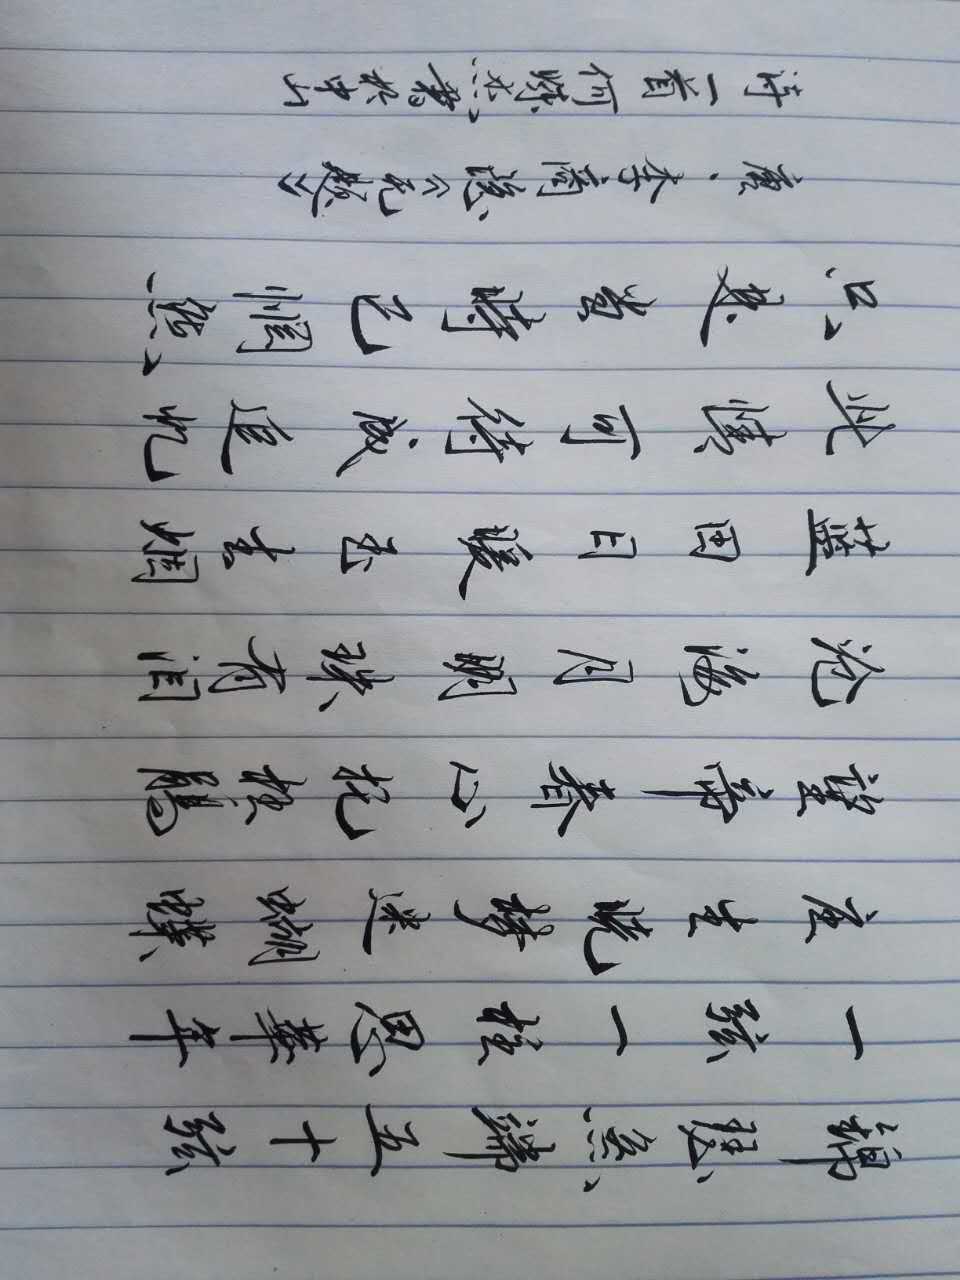 锦瑟無端五十弦
一弦一柱思華年
庄生晓梦迷蝴蝶
望帝春心托杜鹃
沧海月明珠有泪
蓝田日暖玉生烟
此情可待成追忆
只是當時已惘然
唐·李商隐《无题》
诗一首何 书於中山